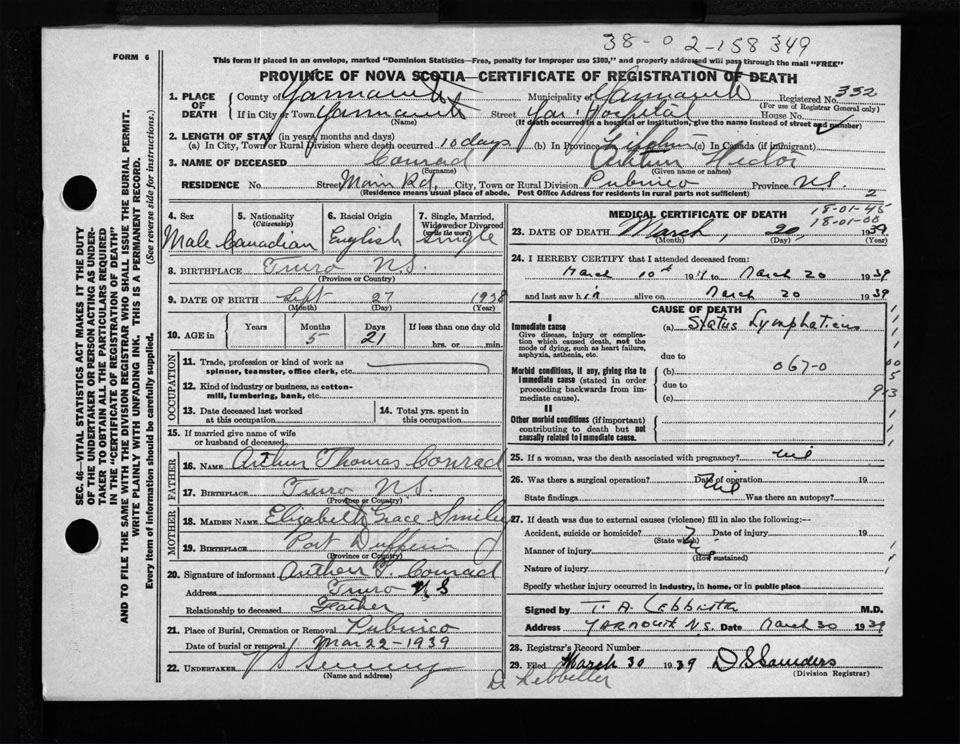 38-02-158349
FORM 6
This form if placed in an envelope, marked "Dominion Statistics—Free, penalty for improper use $300," and properly addressed will pass through the mail "FREE"
PROVINCE OF NOVA SCOTIA—CERTIFICATE OF REGISTRATION OF DEATH
1. PLACE OF DEATH County of Yarmouth Municipality of Yarmouth Registered No. 332
(For use of Registrar General only)
If in City or Town Yarmouth Street Yar. Hospital House No.
(Name) (If death occurred in a hospital or institution, give the name instead of street and number)
2. LENGTH OF STAY (in years, months and days)
(a) In City, Town or Rural Division where death occurred 10 days (b) In Province Lifetime (c) In Canada (if immigrant)
3. NAME OF DECEASED Conrad Arthur Hector
(Surname) (Given name or names)
RESIDENCE No. Street Main Rd. City, Town or Rural Division Pubnico Province N.S.
(Residence means usual place of abode. Post Office Address for residents in rural parts not sufficient) 2
4. Sex 5. Nationality (Citizenship) 6. Racial Origin 7. Single, Married, Widowed or Divorced (write the word)
Male Canadian English Single
8. BIRTHPLACE Truro N.S.
(Province or Country)
9. DATE OF BIRTH Sept 27 1938
(Month) (Day) (Year)
10. AGE in Years Months Days If less than one day old
5 21 hrs. or min.
OCCUPATION
11. Trade, profession or kind of work as spinner, teamster, office clerk, etc.
12. Kind of industry or business, as cotton-mill, lumbering, bank, etc.
13. Date deceased last worked at this occupation 14. Total yrs. spent in this occupation
15. If married give name of wife or husband of deceased
FATHER
16. NAME Arthur Thomas Conrad
17. BIRTHPLACE Truro N.S.
(Province or Country)
MOTHER
18. MAIDEN NAME Elizabeth Grace Smiley
19. BIRTHPLACE Port Dufferin
(Province or Country)
20. Signature of informant Arthur T Conrad
Address Truro N S
Relationship to deceased Father
21. Place of Burial, Cremation or Removal Pubnico
Date of burial or removal Mar 22-1939
22. UNDERTAKER
(Name and address)
MEDICAL CERTIFICATE OF DEATH
18-01-45
18-01-00
23. DATE OF DEATH March, 20, 1939
(Month) (Day) (Year)
24. I HEREBY CERTIFY that I attended deceased from:
March 10th 1939 to March 20 1939
and last saw him alive on March 20 1939
CAUSE OF DEATH
I
Immediate cause (a) Status Lymphaticus
Give disease, injury or complication which caused death, not the mode of dying, such as heart failure, asphyxia, asthenia, etc.
due to
Morbid conditions, if any, giving rise to immediate cause (stated in order proceeding backwards from immediate cause). (b) 067-0
due to
(c)
II
Other morbid conditions (if important) contributing to death but not causally related to immediate cause.
25. If a woman, was the death associated with pregnancy? nil
26. Was there a surgical operation? Nil Date of operation 19
State findings Was there an autopsy?
27. If death was due to external causes (violence) fill in also the following:—
Accident, suicide or homicide? Date of injury 19
(State which)
Manner of injury Nil
(How sustained)
Nature of injury
Specify whether injury occurred in industry, in home, or in public place
Signed by M.D.
Address YARMOUTH N.S. Date March 30 1939
28. Registrar's Record Number
29. Filed March 30 1939 D S Saunders
(Division Registrar)
SEC. 46—VITAL STATISTICS ACT MAKES IT THE DUTY
OF THE UNDERTAKER OR PERSON ACTING AS UNDER-
TAKER TO OBTAIN ALL THE PARTICULARS REQUIRED
IN THE "CERTIFICATE OF REGISTRATION OF DEATH"
AND TO FILE THE SAME WITH THE DIVISION REGISTRAR WHO SHALL ISSUE THE BURIAL PERMIT.
WRITE PLAINLY WITH UNFADING INK. THIS IS A PERMANENT RECORD.
Every item of information should be carefully supplied. (See reverse side for instructions.)